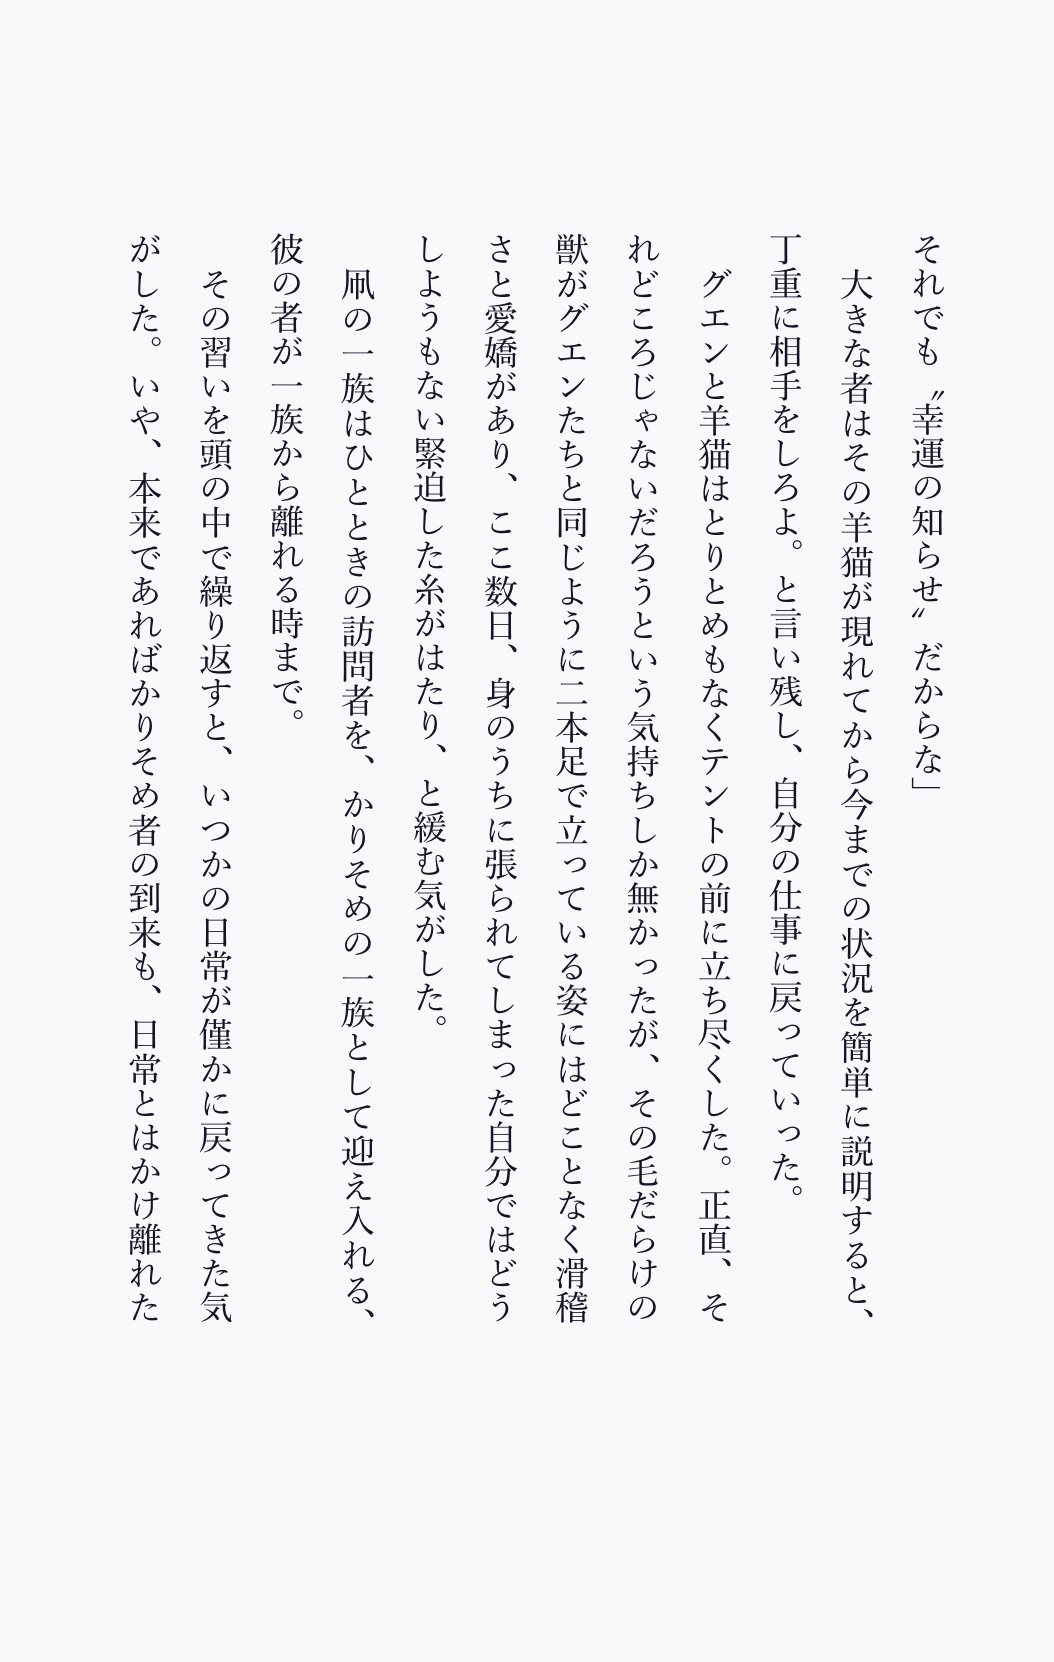 それでも〝幸運の知らせ〟だからな」
　大きな者はその羊猫が現れてから今までの状況を簡単に説明すると、
丁重に相手をしろよ。と言い残し、自分の仕事に戻っていった。
　グエンと羊猫はとりとめもなくテントの前に立ち尽くした。正直、そ
れどころじゃないだろうという気持ちしか無かったが、その毛だらけの
獣がグエンたちと同じように二本足で立っている姿にはどことなく滑稽
さと愛嬌があり、ここ数日、身のうちに張られてしまった自分ではどう
しようもない緊迫した糸がはたり、と緩む気がした。
　凧の一族はひとときの訪問者を、かりそめの一族として迎え入れる、
彼の者が一族から離れる時まで。
　その習いを頭の中で繰り返すと、いつかの日常が僅かに戻ってきた気
がした。いや、本来であればかりそめ者の到来も、日常とはかけ離れた